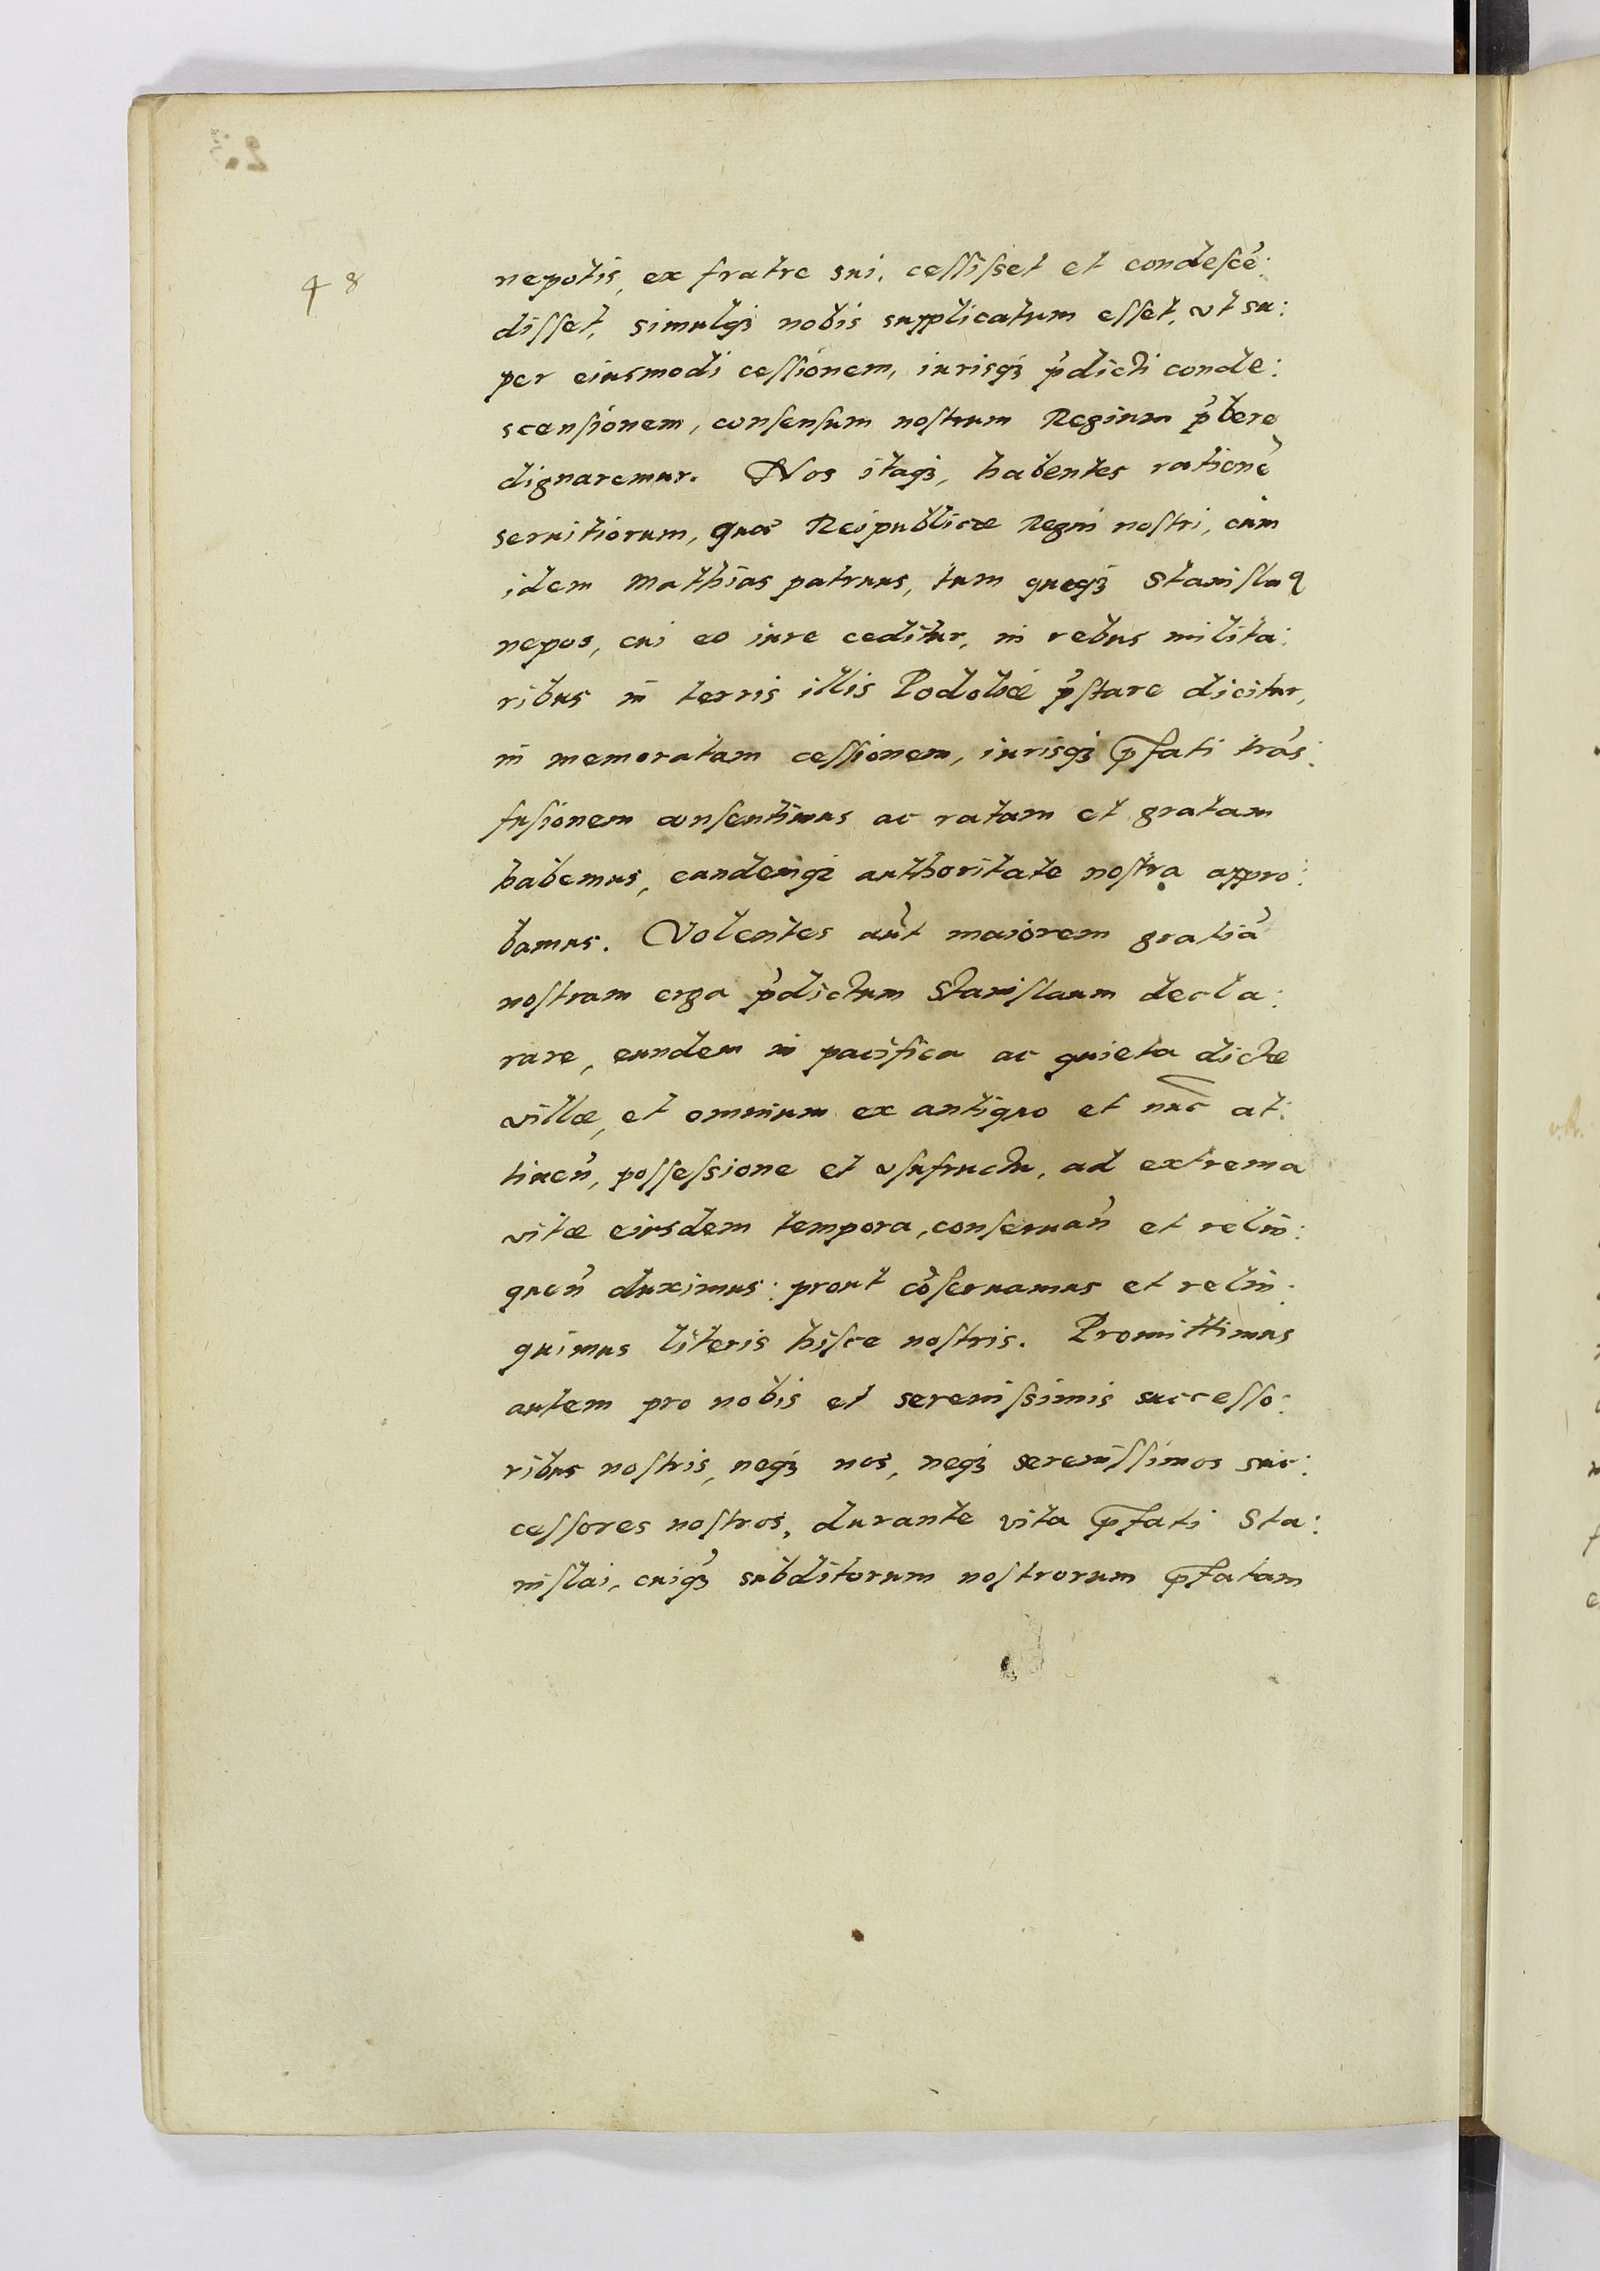 48
nepotis, ex fratre sui, cessisset et condescē:
disset, simulqꝫ nobis supplicatum esset, vt su:
per eiusmodi cessionem, iurisqꝫ p̄dicti conde:
scensionem, consensum nostrum Regium p̄bere
dignaremur. Nos itaqꝫ, habentes rationē
seruitiorum, quæ Reipublicæ Regni nostri, cum
idem Mathias patruus, tum quoqꝫ Stanislaꝯ
nepos, cui eo iure ceditur, in rebus milita:
ribus in terris illis Podoliæ p̄stare dicitur,
in memoratam cessionem, iurisqꝫ p̄fati trās:
fusionem consentimus ac ratam et gratam
habemus, eandemqꝫ authoritate nostra appro:
bamus. Volentes aūt maiorem gratiā
nostram erga p̄dictum Stanislaum decla:
rare, eundem in pacifica ac quieta dictæ
villæ, et omnium ex antiquo et nūc at:
tineñ, possessione et vsufructu, ad extrema
vitæ eiusdem tempora, conseruañ et relin:
queñ duximus: prout cōseruamus et relin:
quimus literis hisce nostris. Promittimus
autem pro nobis et serenissimis successo:
ribus nostris, neqꝫ nos, neqꝫ serenissimos suc:
cessores nostros, durante vita p̄fati Sta:
nislai, cuiqꝫ subditorum nostrorum p̄fatam